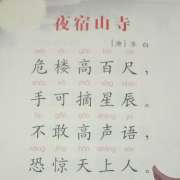 夜宿山寺
［唐］李白
危楼高百尺，
手可摘星辰。
不敢高声语，
恐惊天上人。